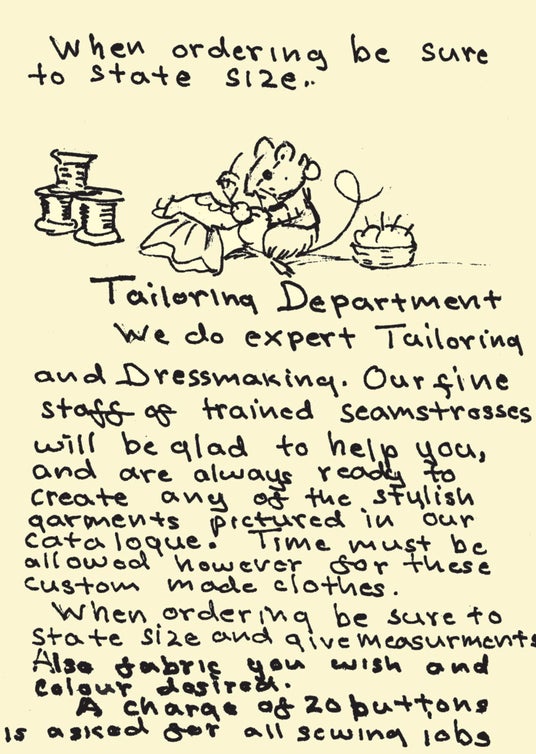 When ordering be sure
to state size..
Tailoring Department
We do expert Tailoring
and Dressmaking. Our fine
staff of trained seamstrosses
will be glad to help you,
and are always ready to
create any of the stylish
garments pictured in our
catalogue. Time must be
allowed however for these
custom made clothes.
When ordering be sure to
state size and give measurments
Also fabric you wish and
colour desired.
A charge of 20 buttons
is asked for all sewing jobs